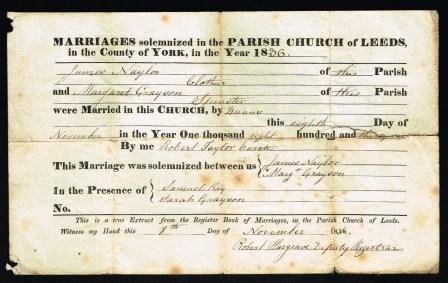 MARRIAGES solemnized in the PARISH CHURCH of LEEDS,
in the County of YORK, in the Year 1836.
James Naylor of this Parish
Clothier
and Margaret Grayson of this Parish
Spinster
were Married in this CHURCH, by Banns
this eighth Day of
November in the Year One thousand eight hundred and thirty six
By me Robert Taylor Curate
This Marriage was solemnized between us { James Naylor
Marg.t Grayson
In the Presence of { Samuel Ray
Sarah Grayson
No.
This is a true Extract from the Register Book of Marriages, in the Parish Church of Leeds.
Witness my Hand this 8th Day of November 1836.
Robert Hargrave Deputy Registrar